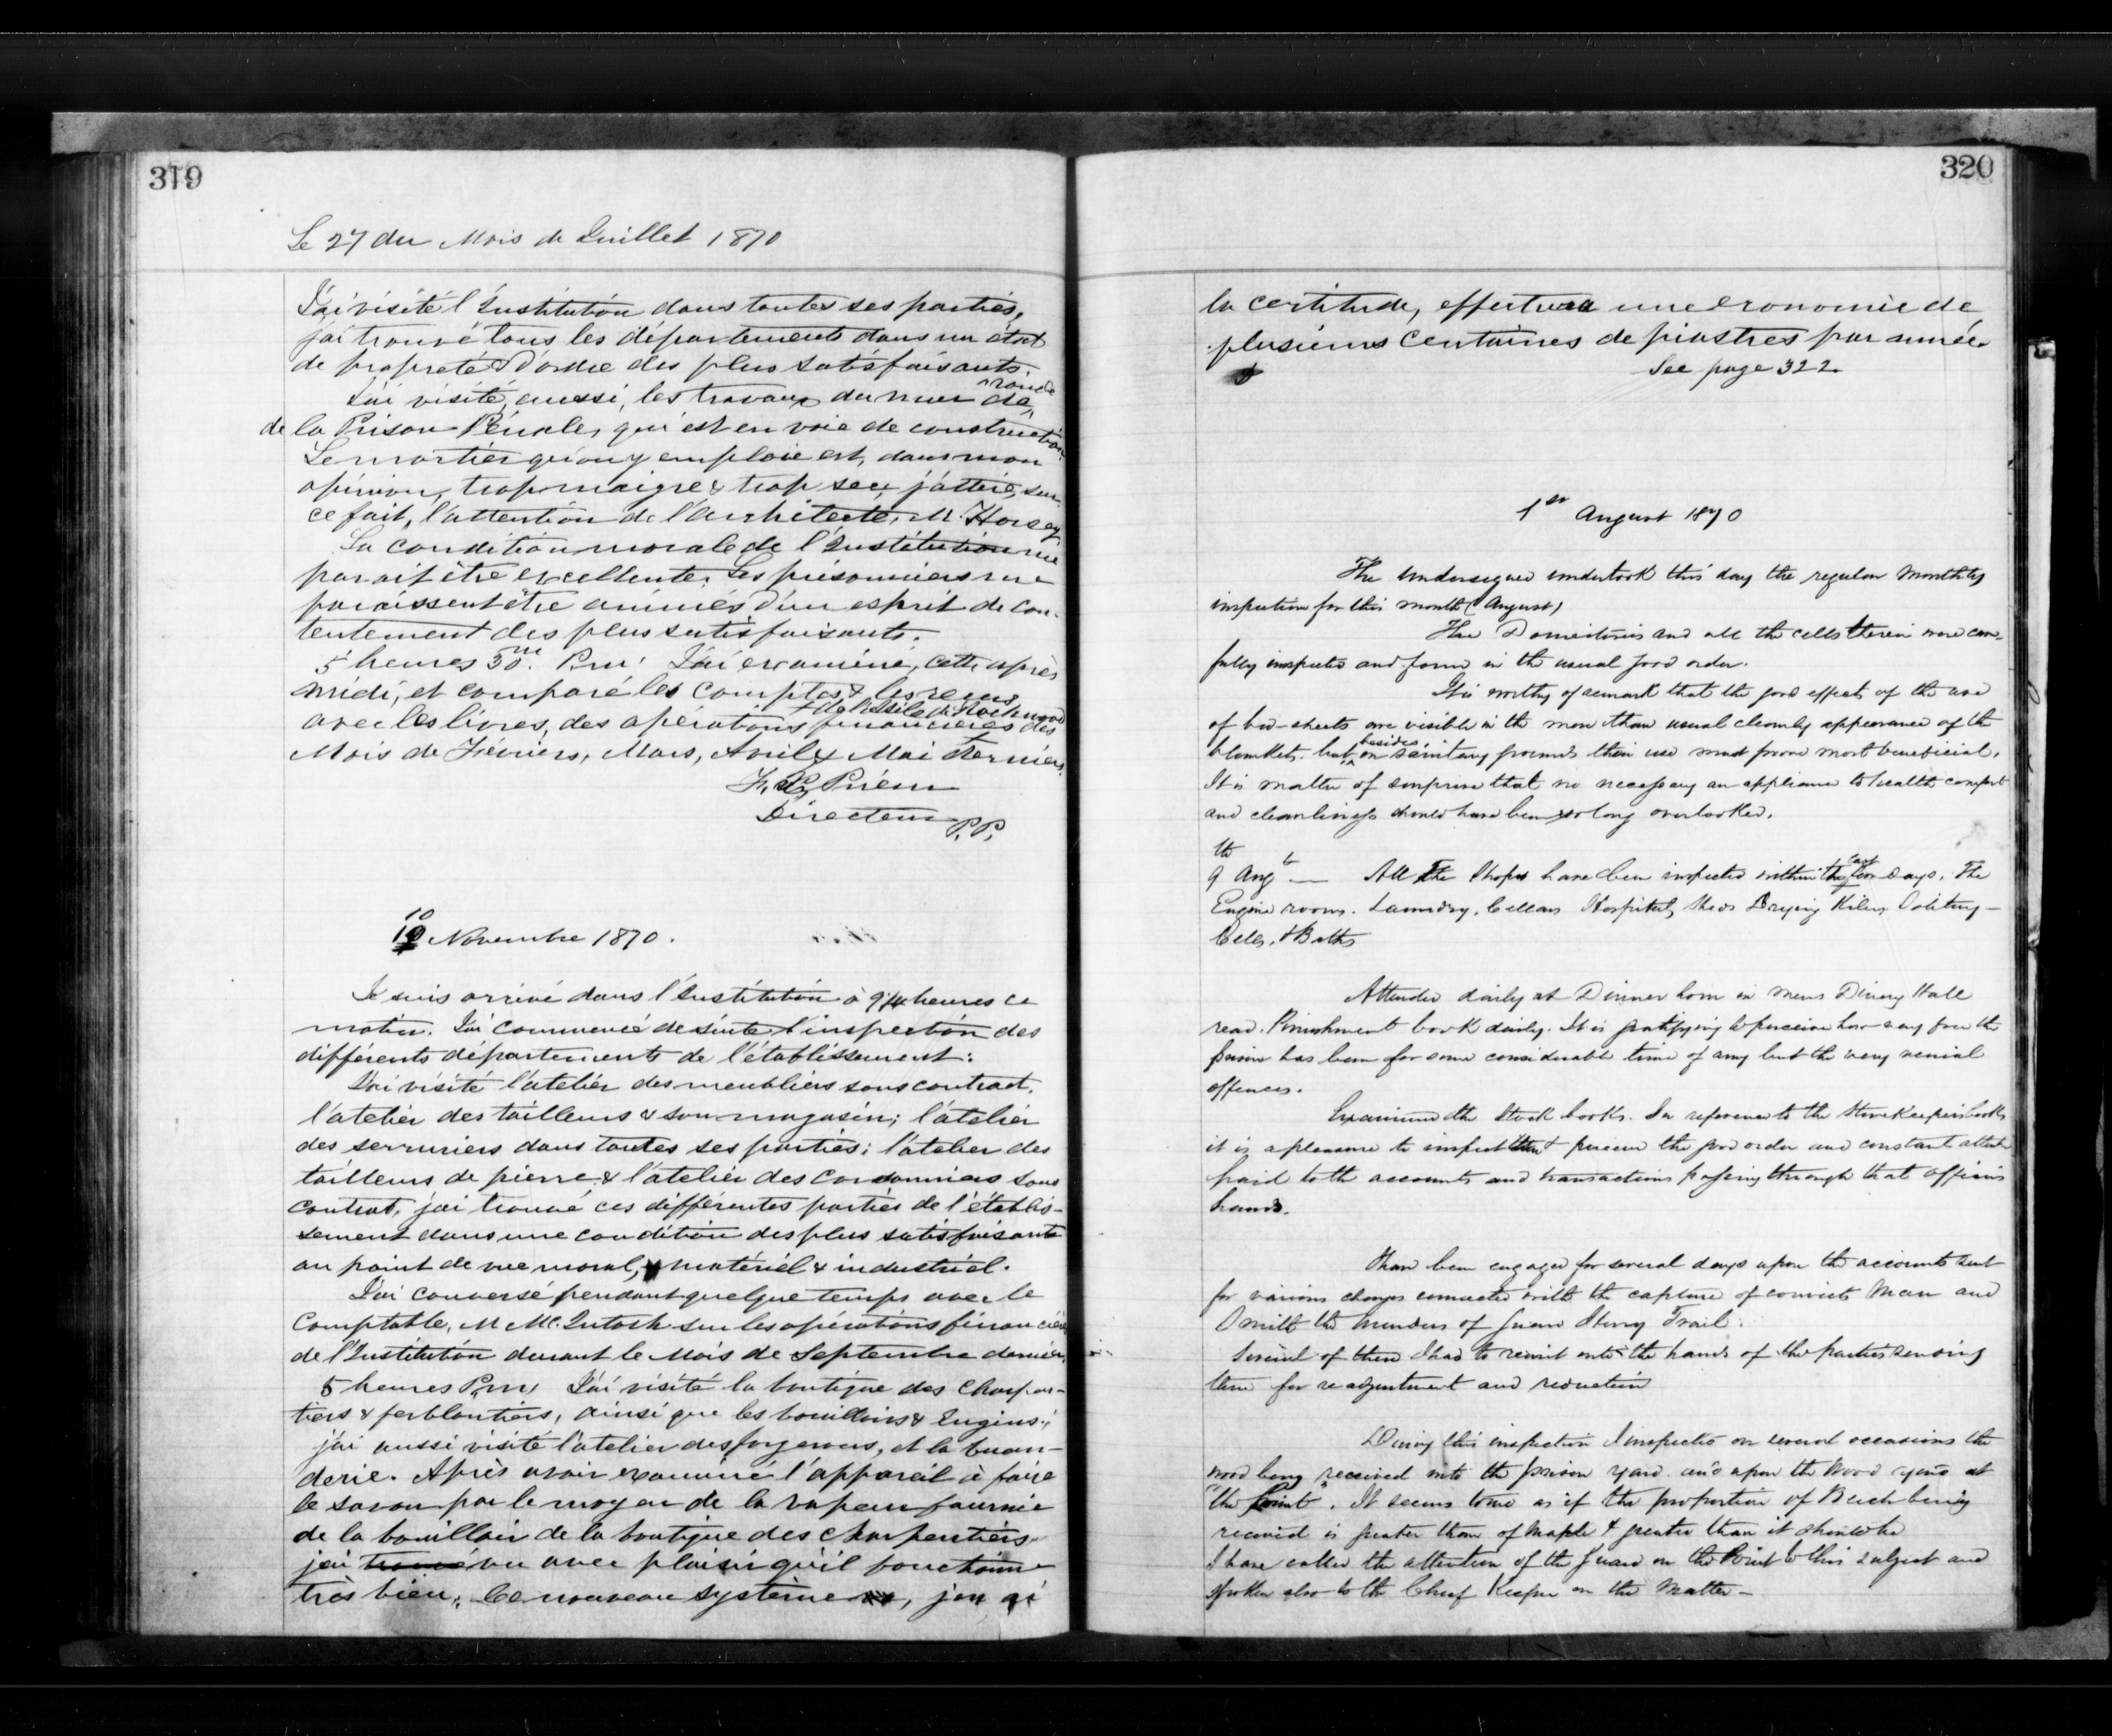 319
Le 27 du Mois de Juillet 1870
J'ai visité l'Institution dans toutes ses parties,
j'ai trouvé tous les départements dans un état
de propreté & d'ordre des plus satisfaisants.
J'ai visité, aussi, les travaux du mur de ronde
de la Prison Pénale, qui est en voie de construction.
Le mortier qu'on y emploie est, dans mon
opinion, trop maigre & trop sec; j'attire, sur
ce fait, l'attention de l'architecte, M. Horsey
La condition morale de l'Institution me
parait être excellente. Les prisonniers me
paraissent être animés d'un esprit de con-
tentement des plus satisfaisants.
5 heures 30m. P.m. J'ai examiné, cette après
midi, et comparé les comptes & les reçus
& de l'Asile de Rockwood
avec les livres, des opérations financières des
Mois de Février, Mars, Avril & Mai derniers.
F. X. Prieur
Directeur P.P.
10
10 Novembre 1870.
Je suis arrivé dans l'Institution à 9¼ heures ce
matin. J'ai commencé de suite l'inspection des
différents départements de l'établissement:
J'ai visité l'atelier des meubliers sous contract,
l'atelier des tailleurs & son magasin; l'atelier
des serruriers dans toutes ses parties; l'atelier des
tailleurs de pierre & l'atelier des cordonniers sous
contrat, j'ai trouvé ces différentes parties de l'établis-
sement dans une condition des plus satisfaisante
au point de vue moral, matériel & industriel.
J'ai conversé pendant quelque temps avec le
Comptable, M Mc.Intosh sur les opérations financières
de l'Institution durant le Mois de Septembre dernier,
5 heures P.m. J'ai visité la boutique des charpen-
tiers & ferblantiers, ainsi que les bouilloirs & Engins;
j'ai aussi visité l'atelier des forgerons, et la buan-
derie. Après avoir examiné l'appareil à faire
le savon par le moyen de la vapeur fournie
de la bouilloir de la boutique des charpentiers.
j'ai trouvé vu avec plaisir qu'il fonctionne
très bien. Ce nouveau système, j'en ai
320
la certitude, effectuera une economie de
plusieurs centaines de piastres par année.
See page 322
1st August 1870
The undersigned undertook this day the regular monthly
inspection for this month (August)
The Dormitories and all the cells therein were care-
fully inspected and found in the usual good order.
It is worthy of remark that the good effects of the use
of bed-sheets are visible in the more than usual cleanly appearance of the
blankets. but besides on sanitary grounds their use must prove most beneficial.
It is matter of surprise that so necessary an appliance to health comfort
and cleanliness should have been so long overlooked.
9th Augt — All the Shops have been inspected within the last few days, The
Engine rooms. Laundry, Cellars Hospital, Sheds Drying Kilns,
Cells, & Baths
Attended daily at Dinner hour in mens Dining Hall
read Punishment book daily. It is gratifying to perceive how very free the
prison has been for some considerable time of any but the very venial
offences.
Examined the Stock books. In reference to the Storekeepers books
it is a pleasure to inspect them & perceive the good order and constant attent
paid to the accounts and transactions passing through that officers
hands.
I have been engaged for several days upon the accounts sent
for various charges connected with the capture of convicts Mann and
Smith the murderers of Guard Henry Trail.
Several of these I had to remit into the hands of the parties sending
them for readjustment and reduction
During this inspection I inspected on several occasions the
wood being received into the prison yard. and upon the Wood yard at
"the Point". It seems to me as if the proportion of Beech being
received is greater than of Maple & greater than it should be
I have called the attention of the Guard on the Point to this subject and
spoken also to the Chief Keeper on the Matter —